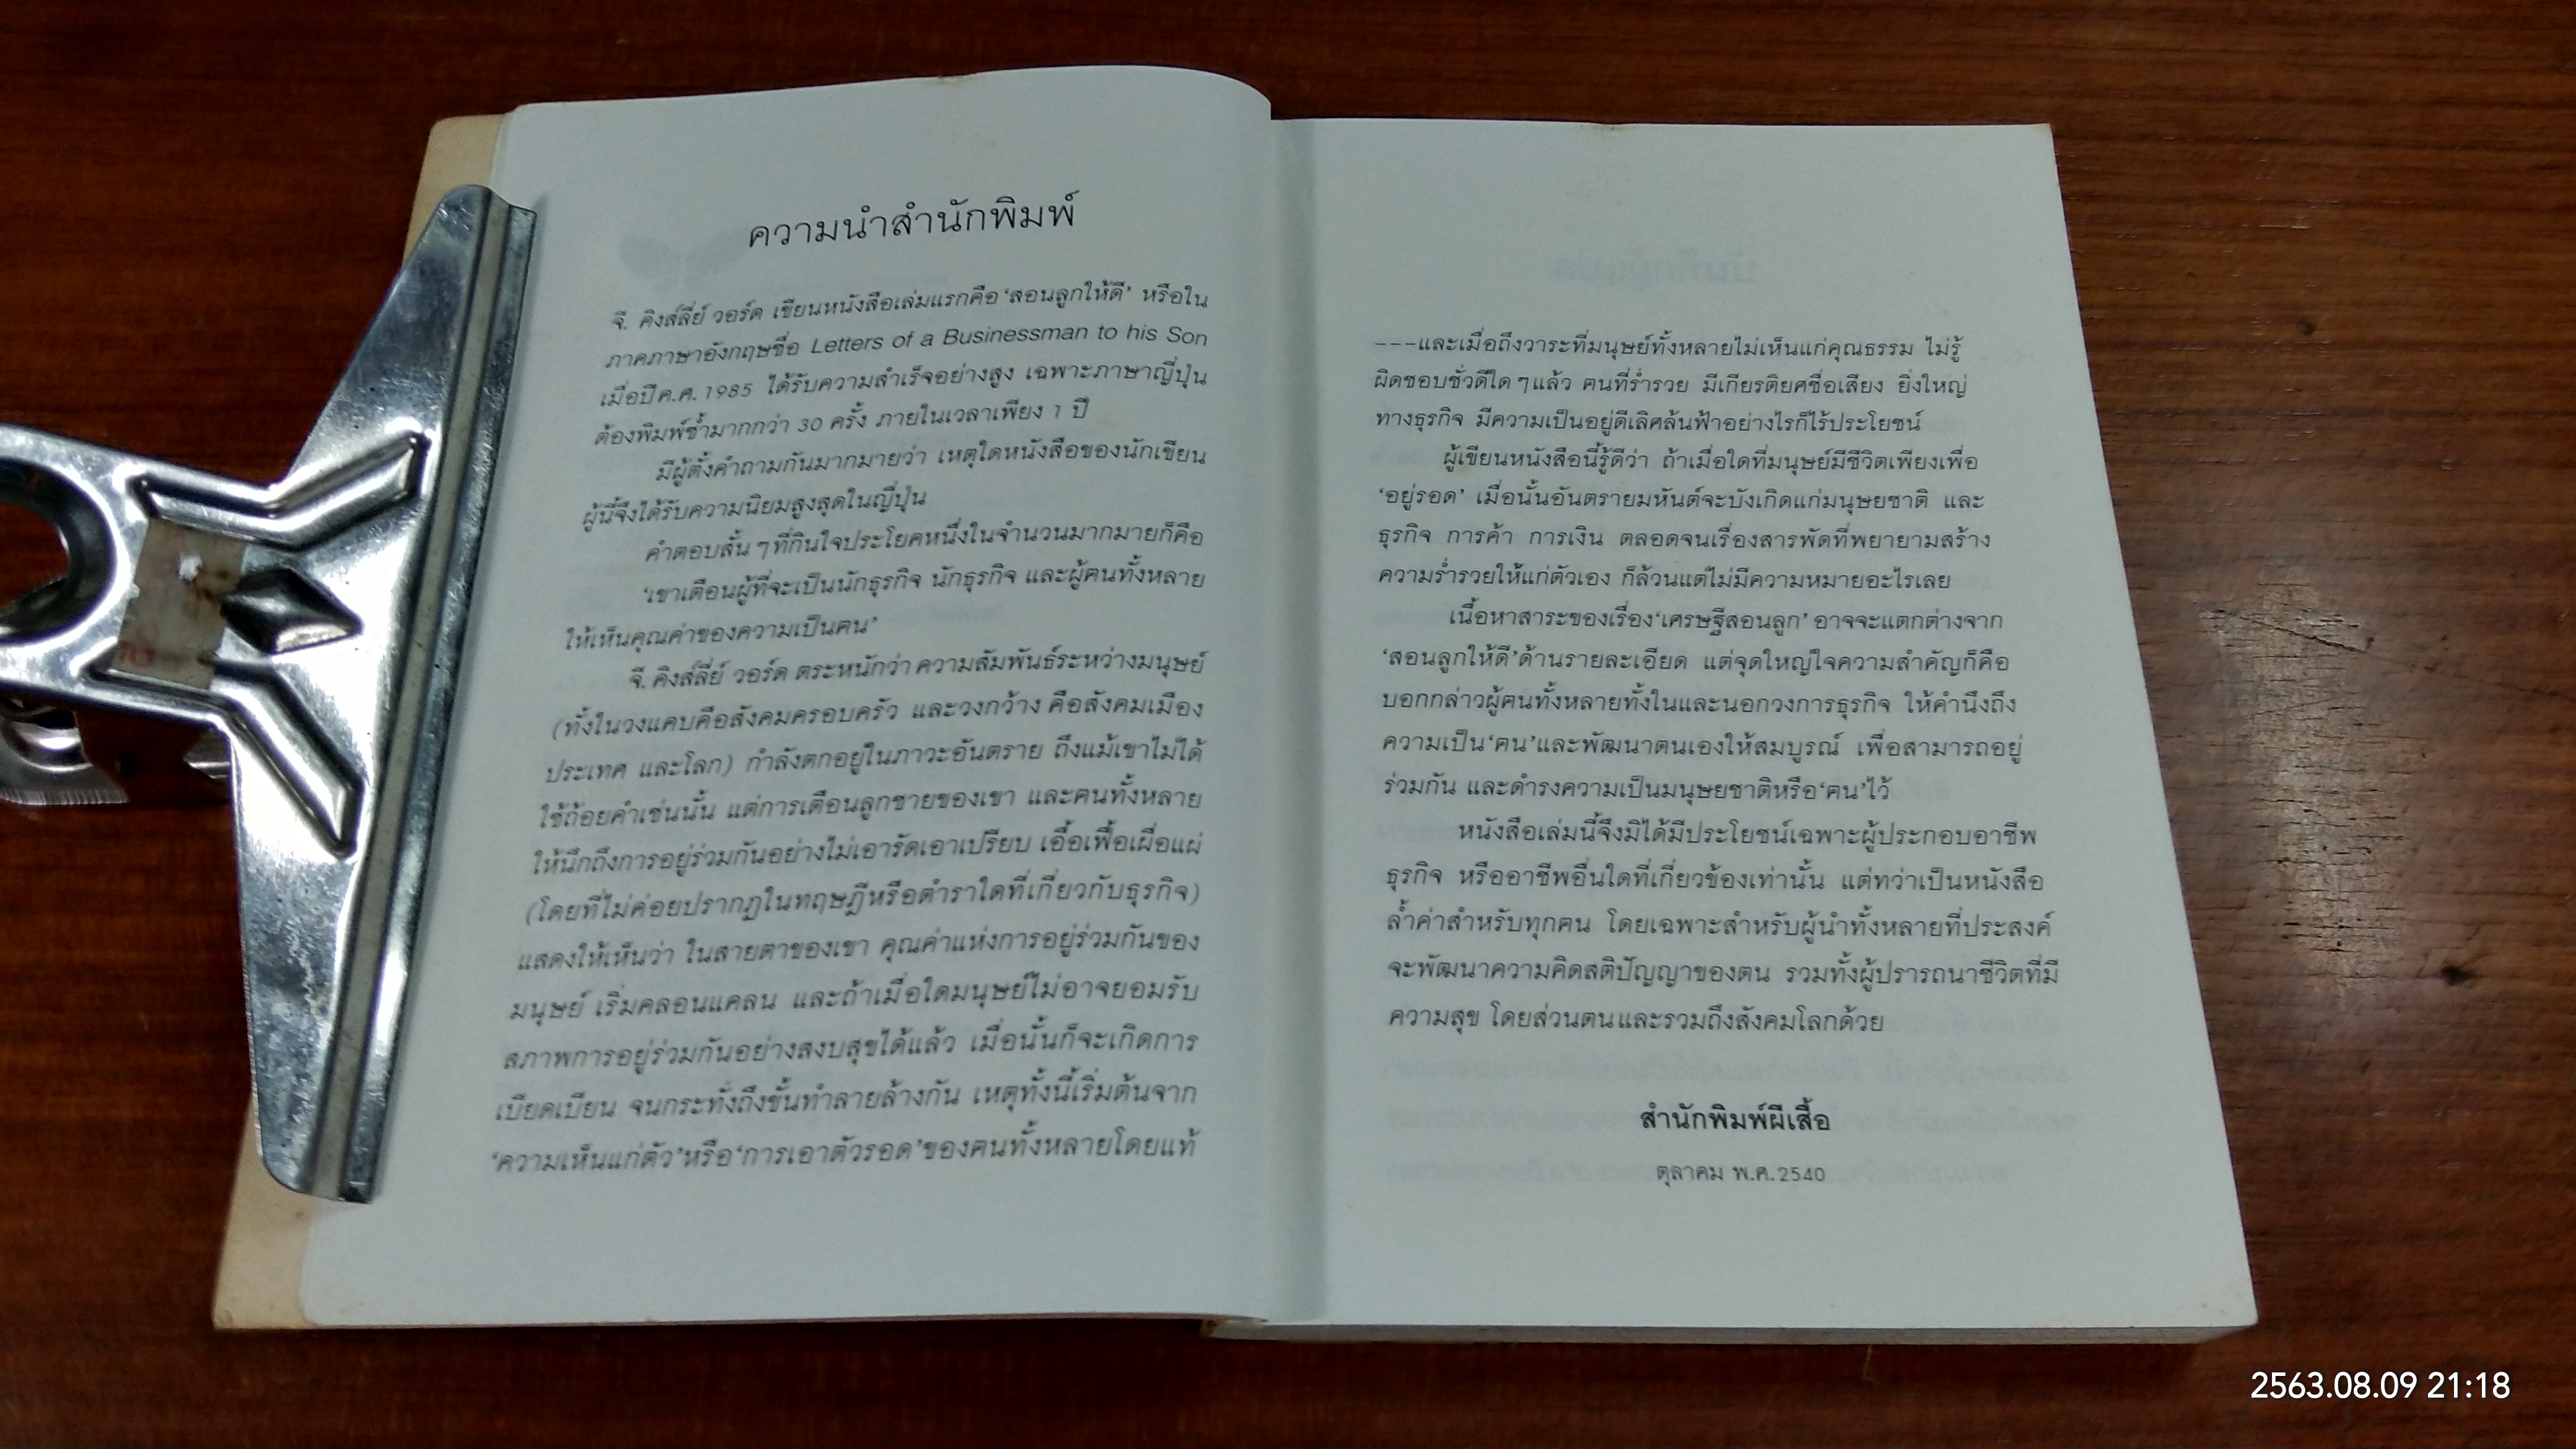 ความนำสำนักพิมพ์
จี. คิงส์ลี่ย์ วอร์ด เขียนหนังสือเล่มแรกคือ‘สอนลูกให้ดี’ หรือใน
ภาคภาษาอังกฤษชื่อ Letters of a Businessman to his Son
เมื่อปีค.ศ.1985 ได้รับความสำเร็จอย่างสูง เฉพาะภาษาญี่ปุ่น
ต้องพิมพ์ซ้ำมากกว่า 30 ครั้ง ภายในเวลาเพียง 1 ปี
มีผู้ตั้งคำถามกันมากมายว่า เหตุใดหนังสือของนักเขียน
ผู้นี้จึงได้รับความนิยมสูงสุดในญี่ปุ่น
คำตอบสั้นๆที่กินใจประโยคหนึ่งในจำนวนมากมายก็คือ
‘เขาเตือนผู้ที่จะเป็นนักธุรกิจ นักธุรกิจ และผู้ฅนทั้งหลาย
ให้เห็นคุณค่าของความเป็นฅน’
จี. คิงส์ลี่ย์ วอร์ด ตระหนักว่า ความสัมพันธ์ระหว่างมนุษย์
(ทั้งในวงแคบคือสังคมครอบครัว และวงกว้าง คือสังคมเมือง
ประเทศ และโลก) กำลังตกอยู่ในภาวะอันตราย ถึงแม้เขาไม่ได้
ใช้ถ้อยคำเช่นนั้น แต่การเตือนลูกชายของเขา และฅนทั้งหลาย
ให้นึกถึงการอยู่ร่วมกันอย่างไม่เอารัดเอาเปรียบ เอื้อเฟื้อเผื่อแผ่
(โดยที่ไม่ค่อยปรากฏในทฤษฎีหรือตำราใดที่เกี่ยวกับธุรกิจ)
แสดงให้เห็นว่า ในสายตาของเขา คุณค่าแห่งการอยู่ร่วมกันของ
มนุษย์ เริ่มคลอนแคลน และถ้าเมื่อใดมนุษย์ไม่อาจยอมรับ
สภาพการอยู่ร่วมกันอย่างสงบสุขได้แล้ว เมื่อนั้นก็จะเกิดการ
เบียดเบียน จนกระทั่งถึงขั้นทำลายล้างกัน เหตุทั้งนี้เริ่มต้นจาก
‘ความเห็นแก่ตัว’หรือ‘การเอาตัวรอด’ของฅนทั้งหลายโดยแท้
---และเมื่อถึงวาระที่มนุษย์ทั้งหลายไม่เห็นแก่คุณธรรม ไม่รู้
ผิดชอบชั่วดีใดๆแล้ว ฅนที่ร่ำรวย มีเกียรติยศชื่อเสียง ยิ่งใหญ่
ทางธุรกิจ มีความเป็นอยู่ดีเลิศล้นฟ้าอย่างไรก็ไร้ประโยชน์
ผู้เขียนหนังสือนี้รู้ดีว่า ถ้าเมื่อใดที่มนุษย์มีชีวิตเพียงเพื่อ
‘อยู่รอด’ เมื่อนั้นอันตรายมหันต์จะบังเกิดแก่มนุษยชาติ และ
ธุรกิจ การค้า การเงิน ตลอดจนเรื่องสารพัดที่พยายามสร้าง
ความร่ำรวยให้แก่ตัวเอง ก็ล้วนแต่ไม่มีความหมายอะไรเลย
เนื้อหาสาระของเรื่อง‘เศรษฐีสอนลูก’ อาจจะแตกต่างจาก
‘สอนลูกให้ดี’ด้านรายละเอียด แต่จุดใหญ่ใจความสำคัญก็คือ
บอกกล่าวผู้ฅนทั้งหลายทั้งในและนอกวงการธุรกิจ ให้คำนึงถึง
ความเป็น‘ฅน’และพัฒนาตนเองให้สมบูรณ์ เพื่อสามารถอยู่
ร่วมกัน และดำรงความเป็นมนุษยชาติหรือ‘ฅน’ไว้
หนังสือเล่มนี้จึงมิได้มีประโยชน์เฉพาะผู้ประกอบอาชีพ
ธุรกิจ หรืออาชีพอื่นใดที่เกี่ยวข้องเท่านั้น แต่ทว่าเป็นหนังสือ
ล้ำค่าสำหรับทุกฅน โดยเฉพาะสำหรับผู้นำทั้งหลายที่ประสงค์
จะพัฒนาความคิดสติปัญญาของตน รวมทั้งผู้ปรารถนาชีวิตที่มี
ความสุข โดยส่วนตนและรวมถึงสังคมโลกด้วย
สำนักพิมพ์ผีเสื้อ
ตุลาคม พ.ศ.2540
2563.08.09 21:18